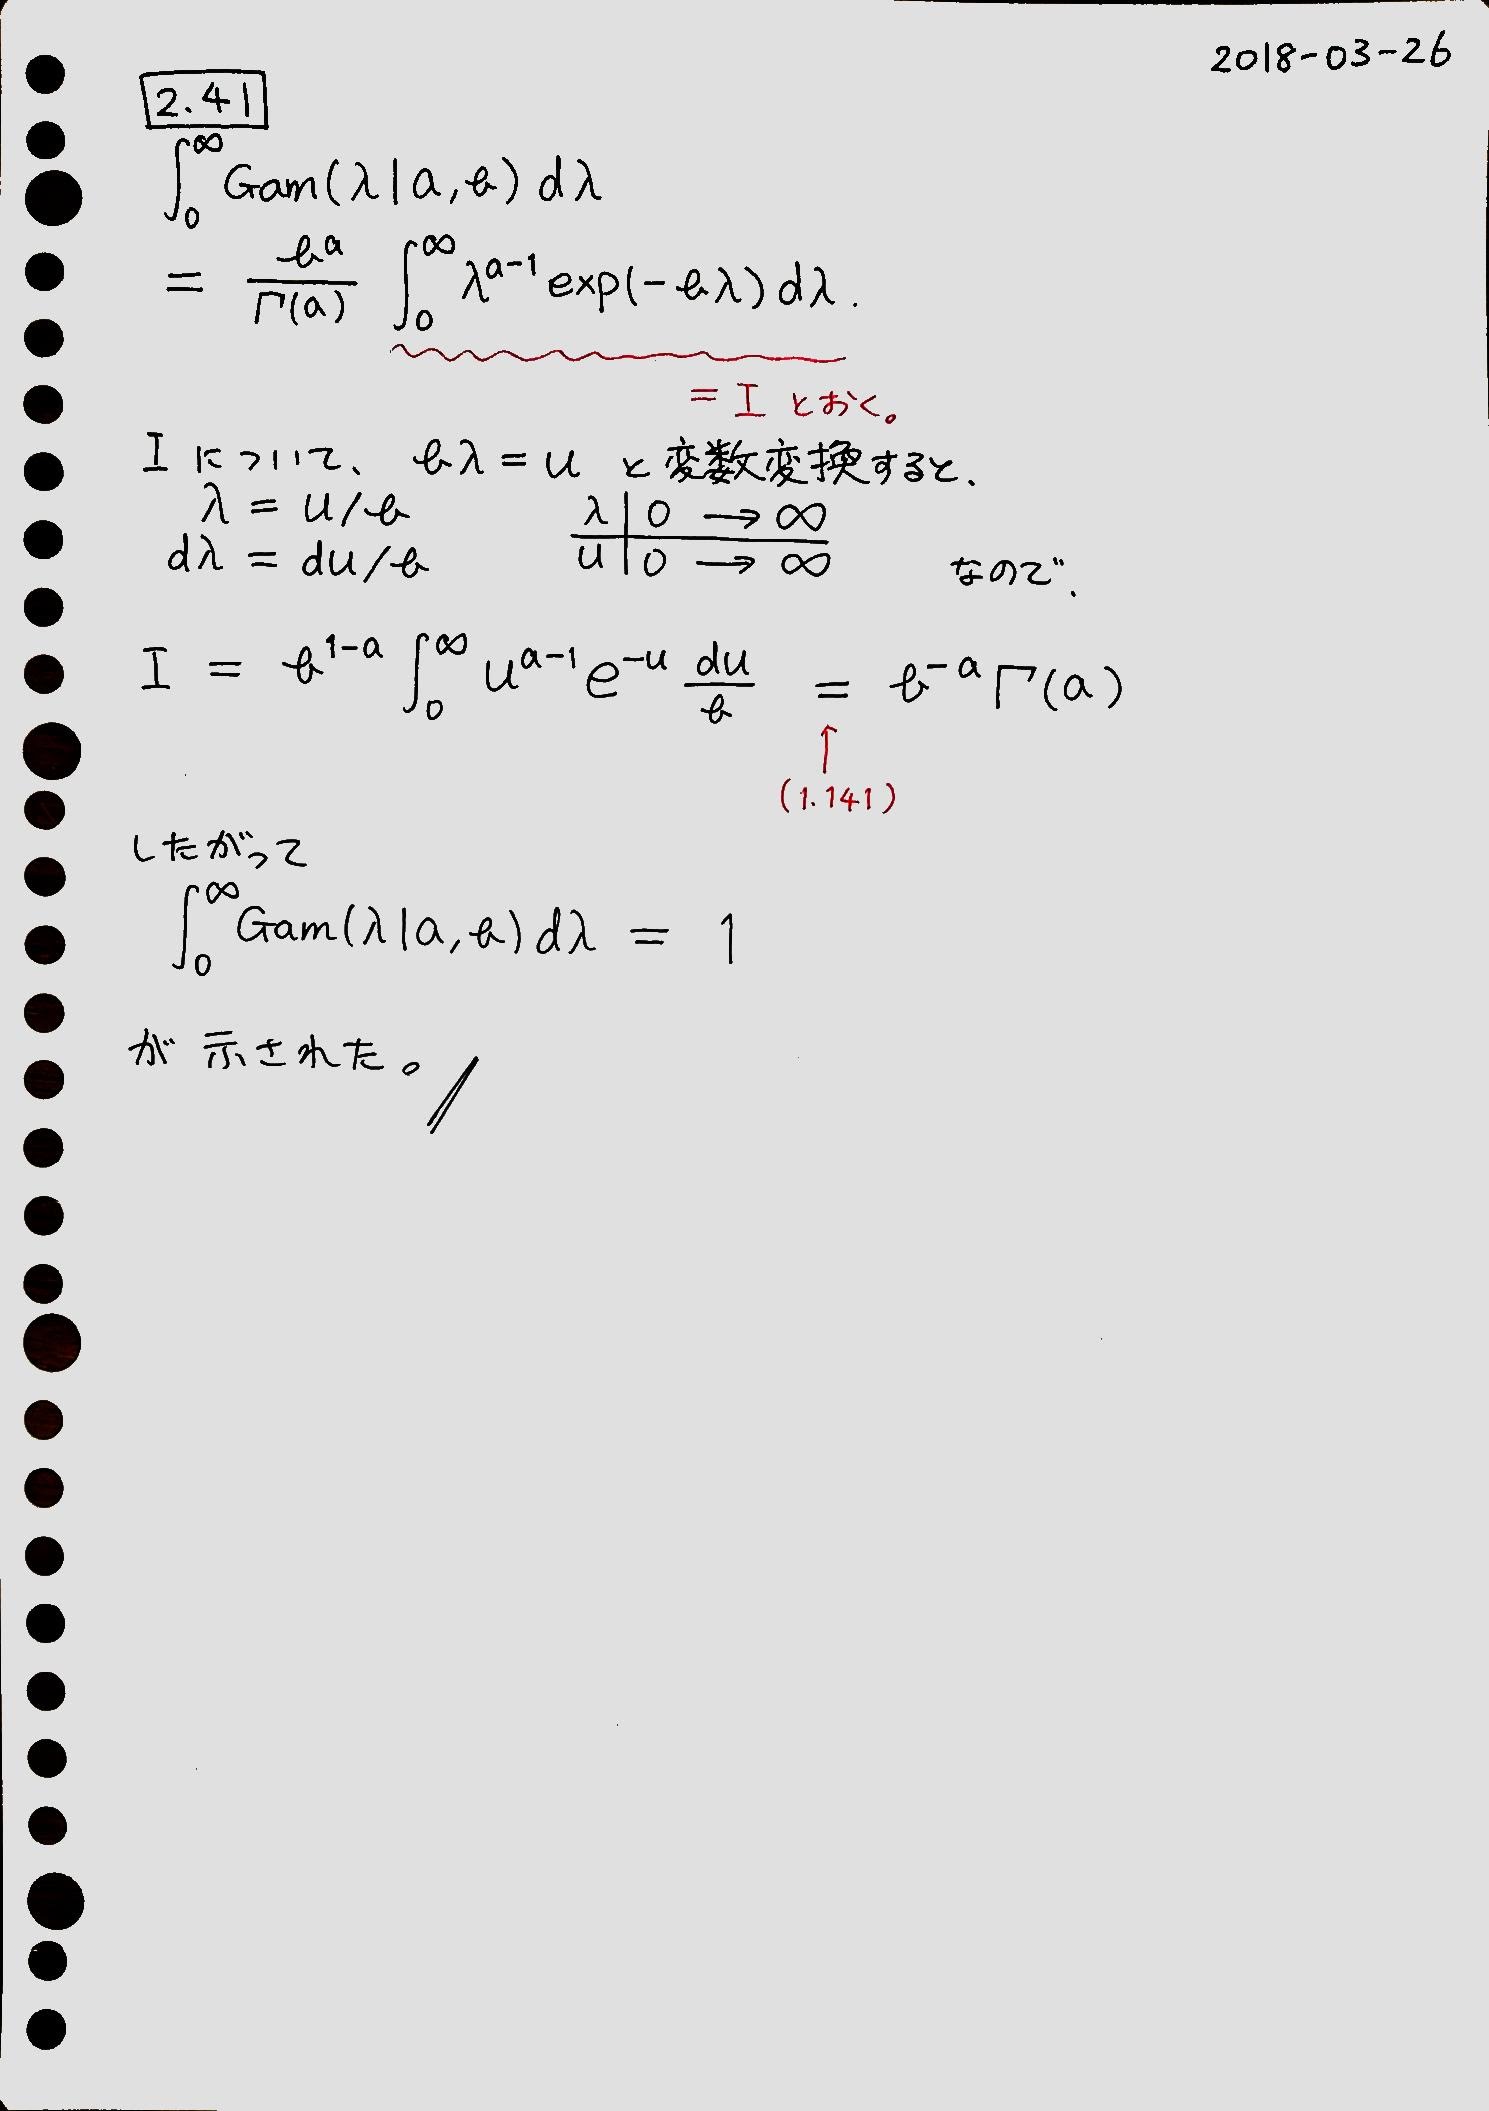 2018-03-26
2.41
∫₀^∞ Gam(λ|a,b) dλ
= b^a / Γ(a) ∫₀^∞ λ^{a-1} exp(-bλ) dλ.
= I とおく。
I について、 bλ = u と変数変換すると、
λ = u/b
λ | 0 → ∞
dλ = du/b
u | 0 → ∞ なので、
I = b^{1-a} ∫₀^∞ u^{a-1} e^{-u} du/b = b^{-a} Γ(a)
↑
(1.141)
したがって
∫₀^∞ Gam(λ|a,b) dλ = 1
が示された。//